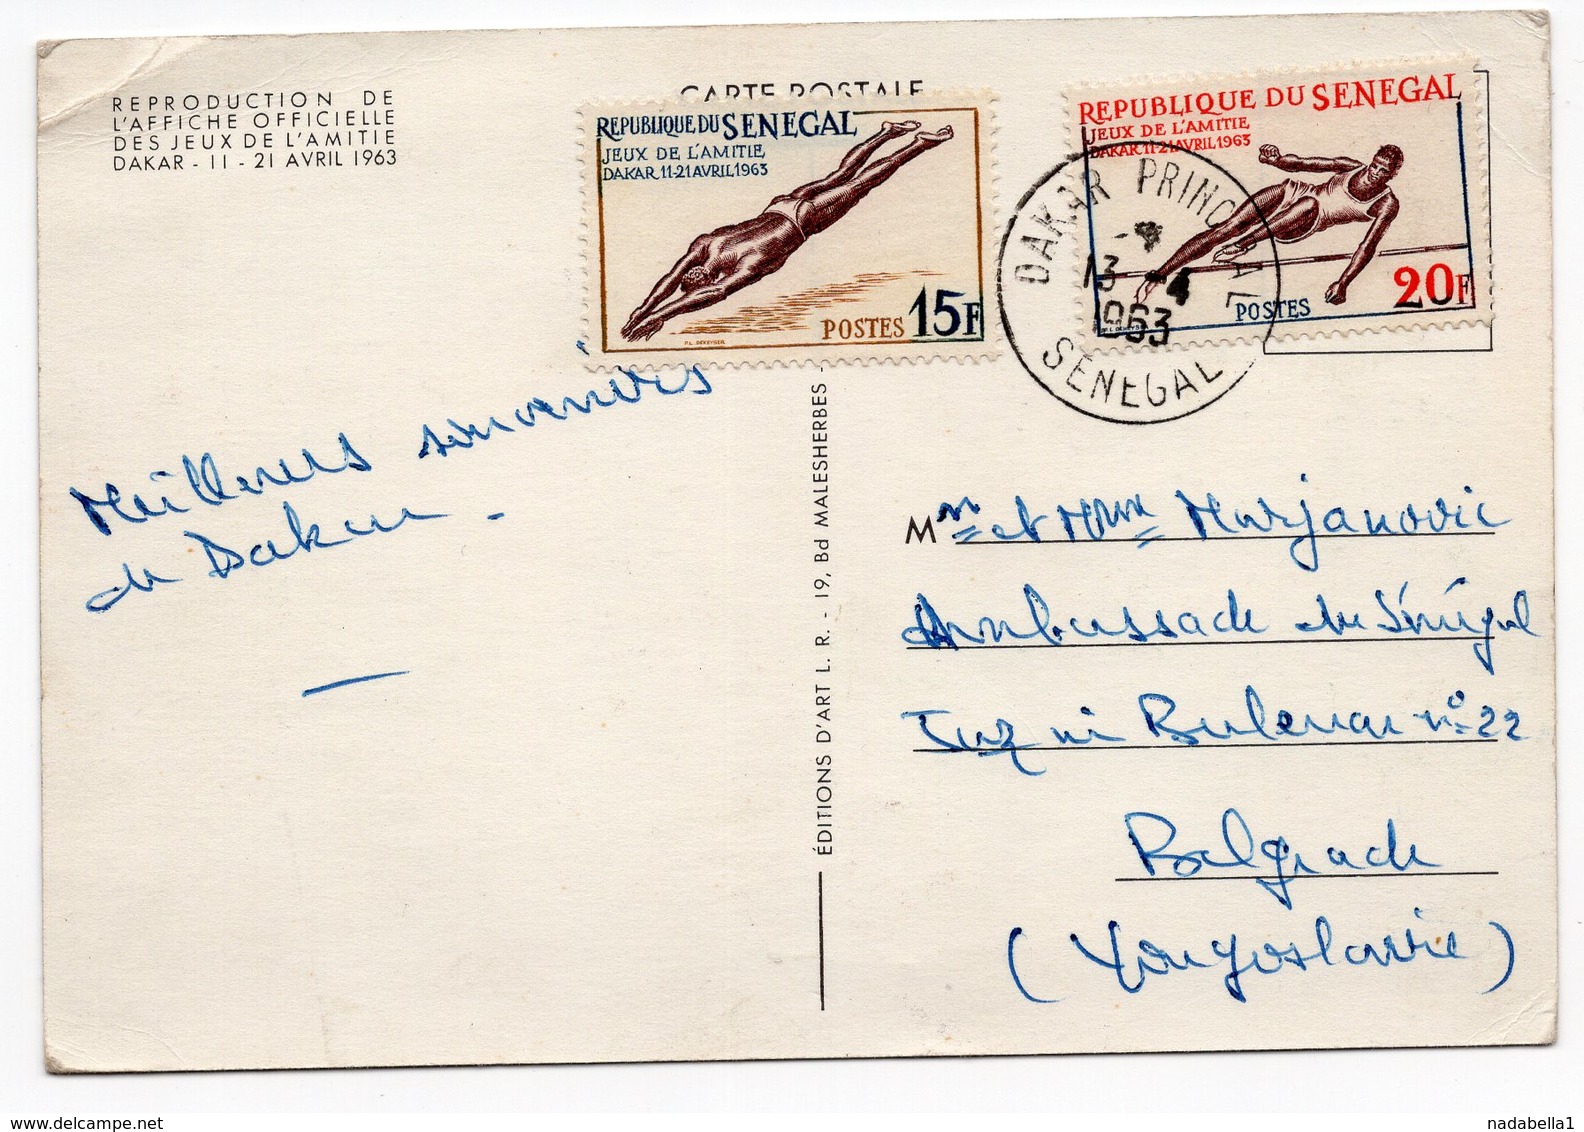 REPRODUCTION DE
L'AFFICHE OFFICIELLE
DES JEUX DE L'AMITIE
DAKAR - 11 - 21 AVRIL 1963
CARTE POSTALE
REPUBLIQUE DU SENEGAL
JEUX DE L'AMITIE
DAKAR 11-21 AVRIL 1963
POSTES 15F
P.L. DEKEYSER
REPUBLIQUE DU SENEGAL
JEUX DE L'AMITIE
DAKAR 11-21 AVRIL 1963
POSTES 20F
DAKAR PRINCIPAL
13 -4
1963
SENEGAL
Meilleurs souvenirs
de Dakar -
ÉDITIONS D'ART L. R. - 19, Bd MALESHERBES -
Mr et Mme Marjanovic
Ambassade du Sénégal
Bulevar n° 22
Belgrade
(Yougoslavie)
nadabella1